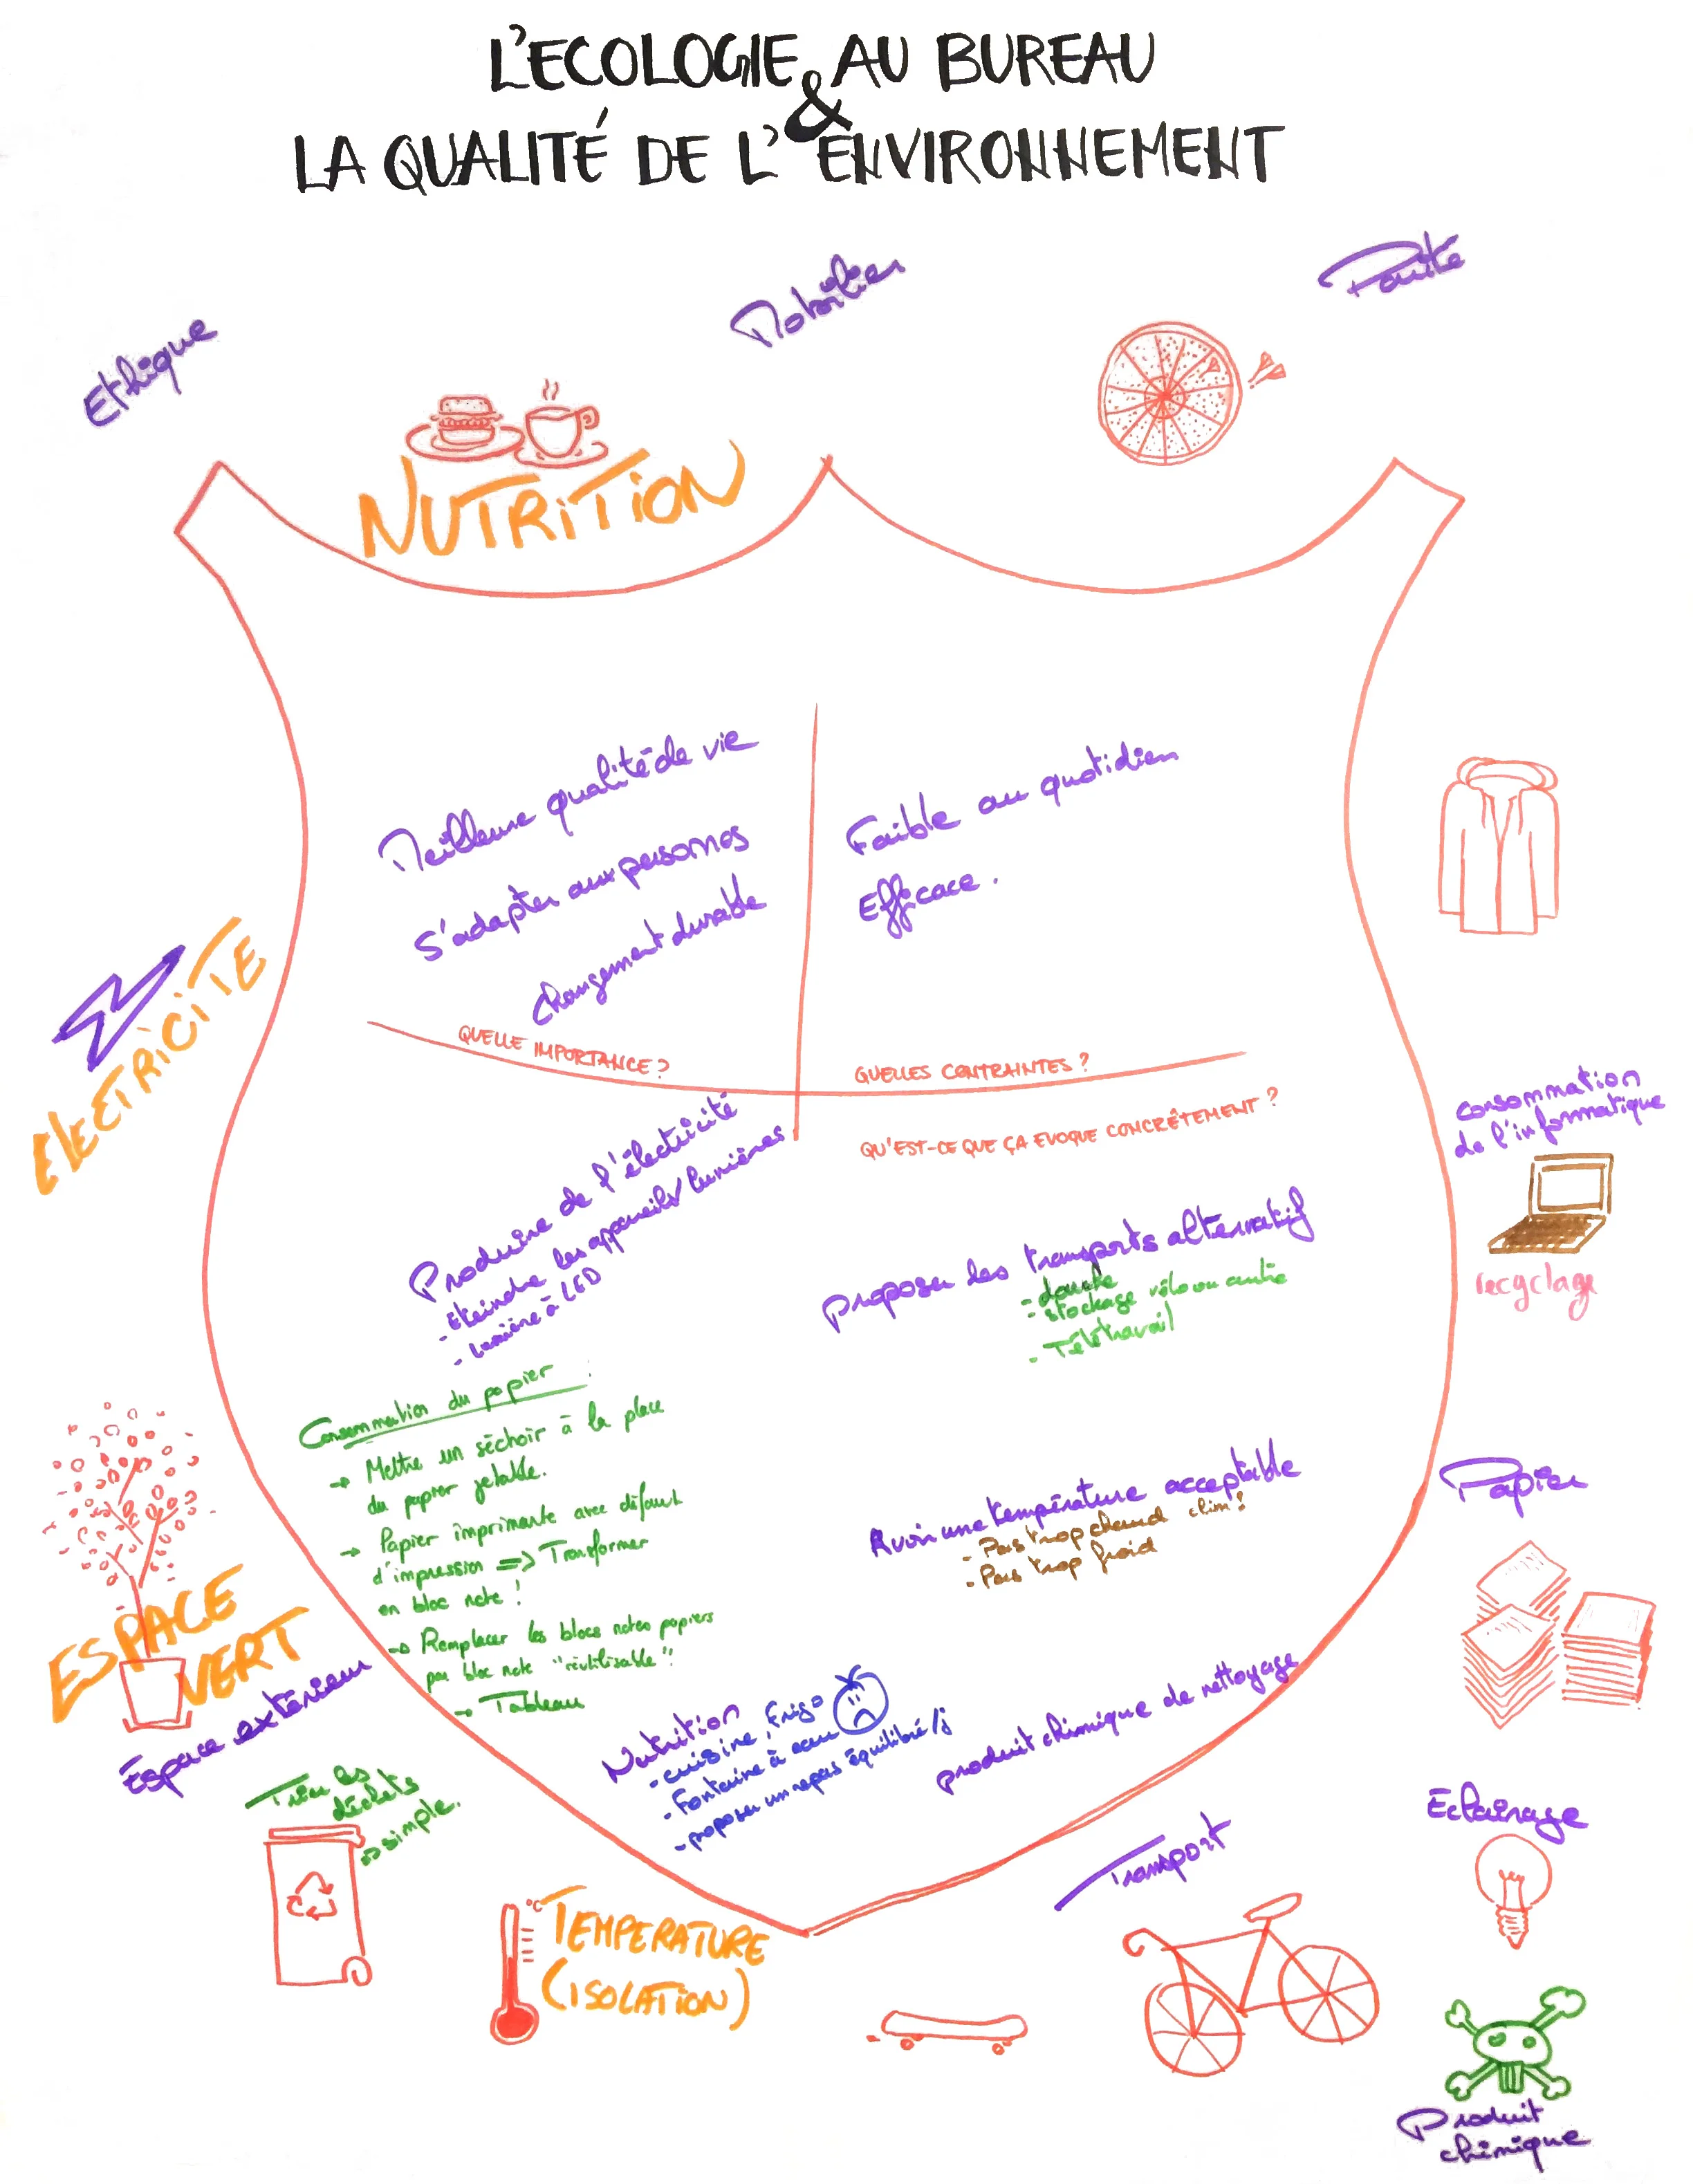 L'ECOLOGIE AU BUREAU
&
LA QUALITÉ DE L'ENVIRONNEMENT
Ethique
Mobilier
NUTRITION
Meilleure qualité de vie
S'adapter aux personnes
changement durable
QUELLE IMPORTANCE ?
Faible au quotidien
Efficace.
QUELLES CONTRAINTES ?
QU'EST-CE QUE ÇA EVOQUE CONCRÊTEMENT ?
ELECTRICITE
Produire de l'électricité
- éteindre les appareils/lumières
- lumière à LED
proposer les transports alternatif
- douche
- stockage vélo ou autre
- Télétravail
consommation
de l'informatique
recyclage
Consommation du papier :
→ Mettre un séchoir à la place
du papier jetable.
→ Papier imprimante avec défaut
d'impression => Transformer
en bloc note !
→ Remplacer les blocs notes papiers
par bloc note "réutilisable"!
→ Tableau
Avoir une température acceptable
- Pas trop chaud clim !
- Pas trop froid
Papier
ESPACE
VERT
Espace extérieur
Nutrition
- cuisine, frigo
- Fontaine à eau
- proposer un repas équilibré/j
produit chimique de nettoyage
Trier les
déchets
=> simple.
°C
TEMPERATURE
(ISOLATION)
Transport
Eclairage
Produit
chimique